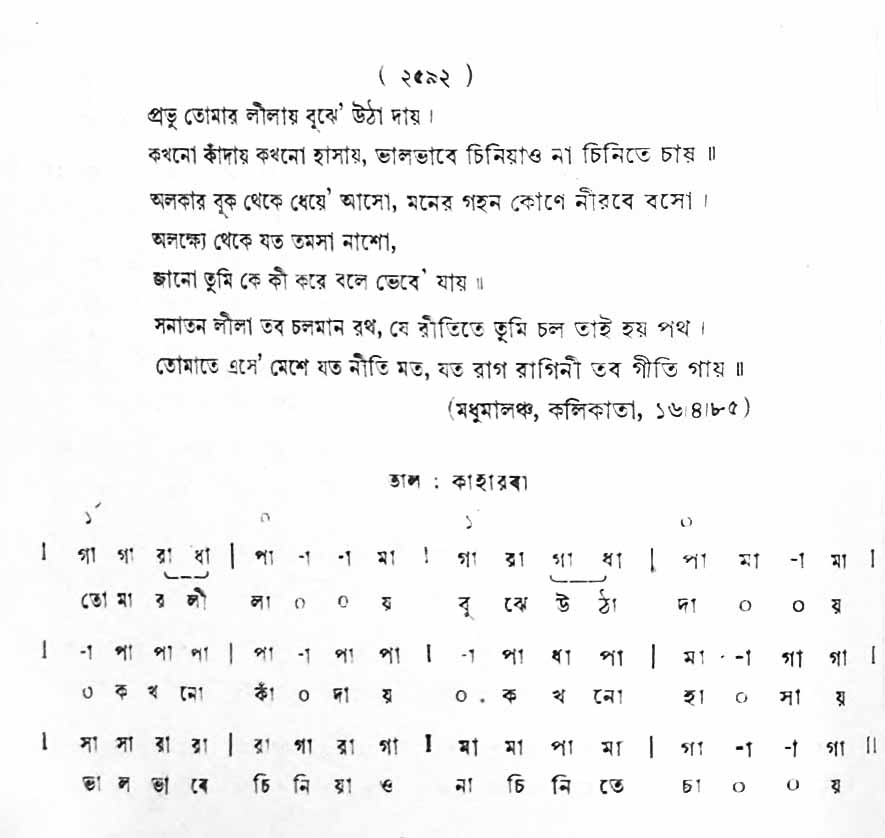 ( ২৫৯২ )
প্রভু তোমার লীলায় বুঝে' উঠা দায় ।
কখনো কাঁদায় কখনো হাসায়, ভালভাবে চিনিয়াও না চিনিতে চায় ॥
অলকার বুক থেকে ধেয়ে' আসো, মনের গহন কোণে নীরবে বসো ।
অলক্ষ্যে থেকে যত তমসা নাশো,
জানো তুমি কে কী করে বলে ভেবে' যায় ॥
সনাতন লীলা তব চলমান রথ, যে রীতিতে তুমি চল তাই হয় পথ ।
তোমাতে এসে' মেশে যত নীতি মত, যত রাগ রাগিনী তব গীতি গায় ॥
(মধুমালঞ্চ, কলিকাতা, ১৬।৪।৮৫)
তাল : কাহারবা
১´ ০ ১´ ০
I গা গা রা ধা | পা -া -া মা I গা রা গা ধা | পা মা -া মা I
তো মা র লী লা ০ ০ য় বু ঝে উ ঠা দা ০ ০ য়
I -া পা পা পা | পা -া পা পা I -া পা ধা পা | মা -া গা গা I
০ ক খ নো কাঁ ০ দা য় ০ ক খ নো হা ০ সা য়
I সা সা রা রা | রা গা রা গা I মা মা পা মা | গা -া -া গা II
ভা ল ভা বে চি নি য়া ও না চি নি তে চা ০ ০ য়